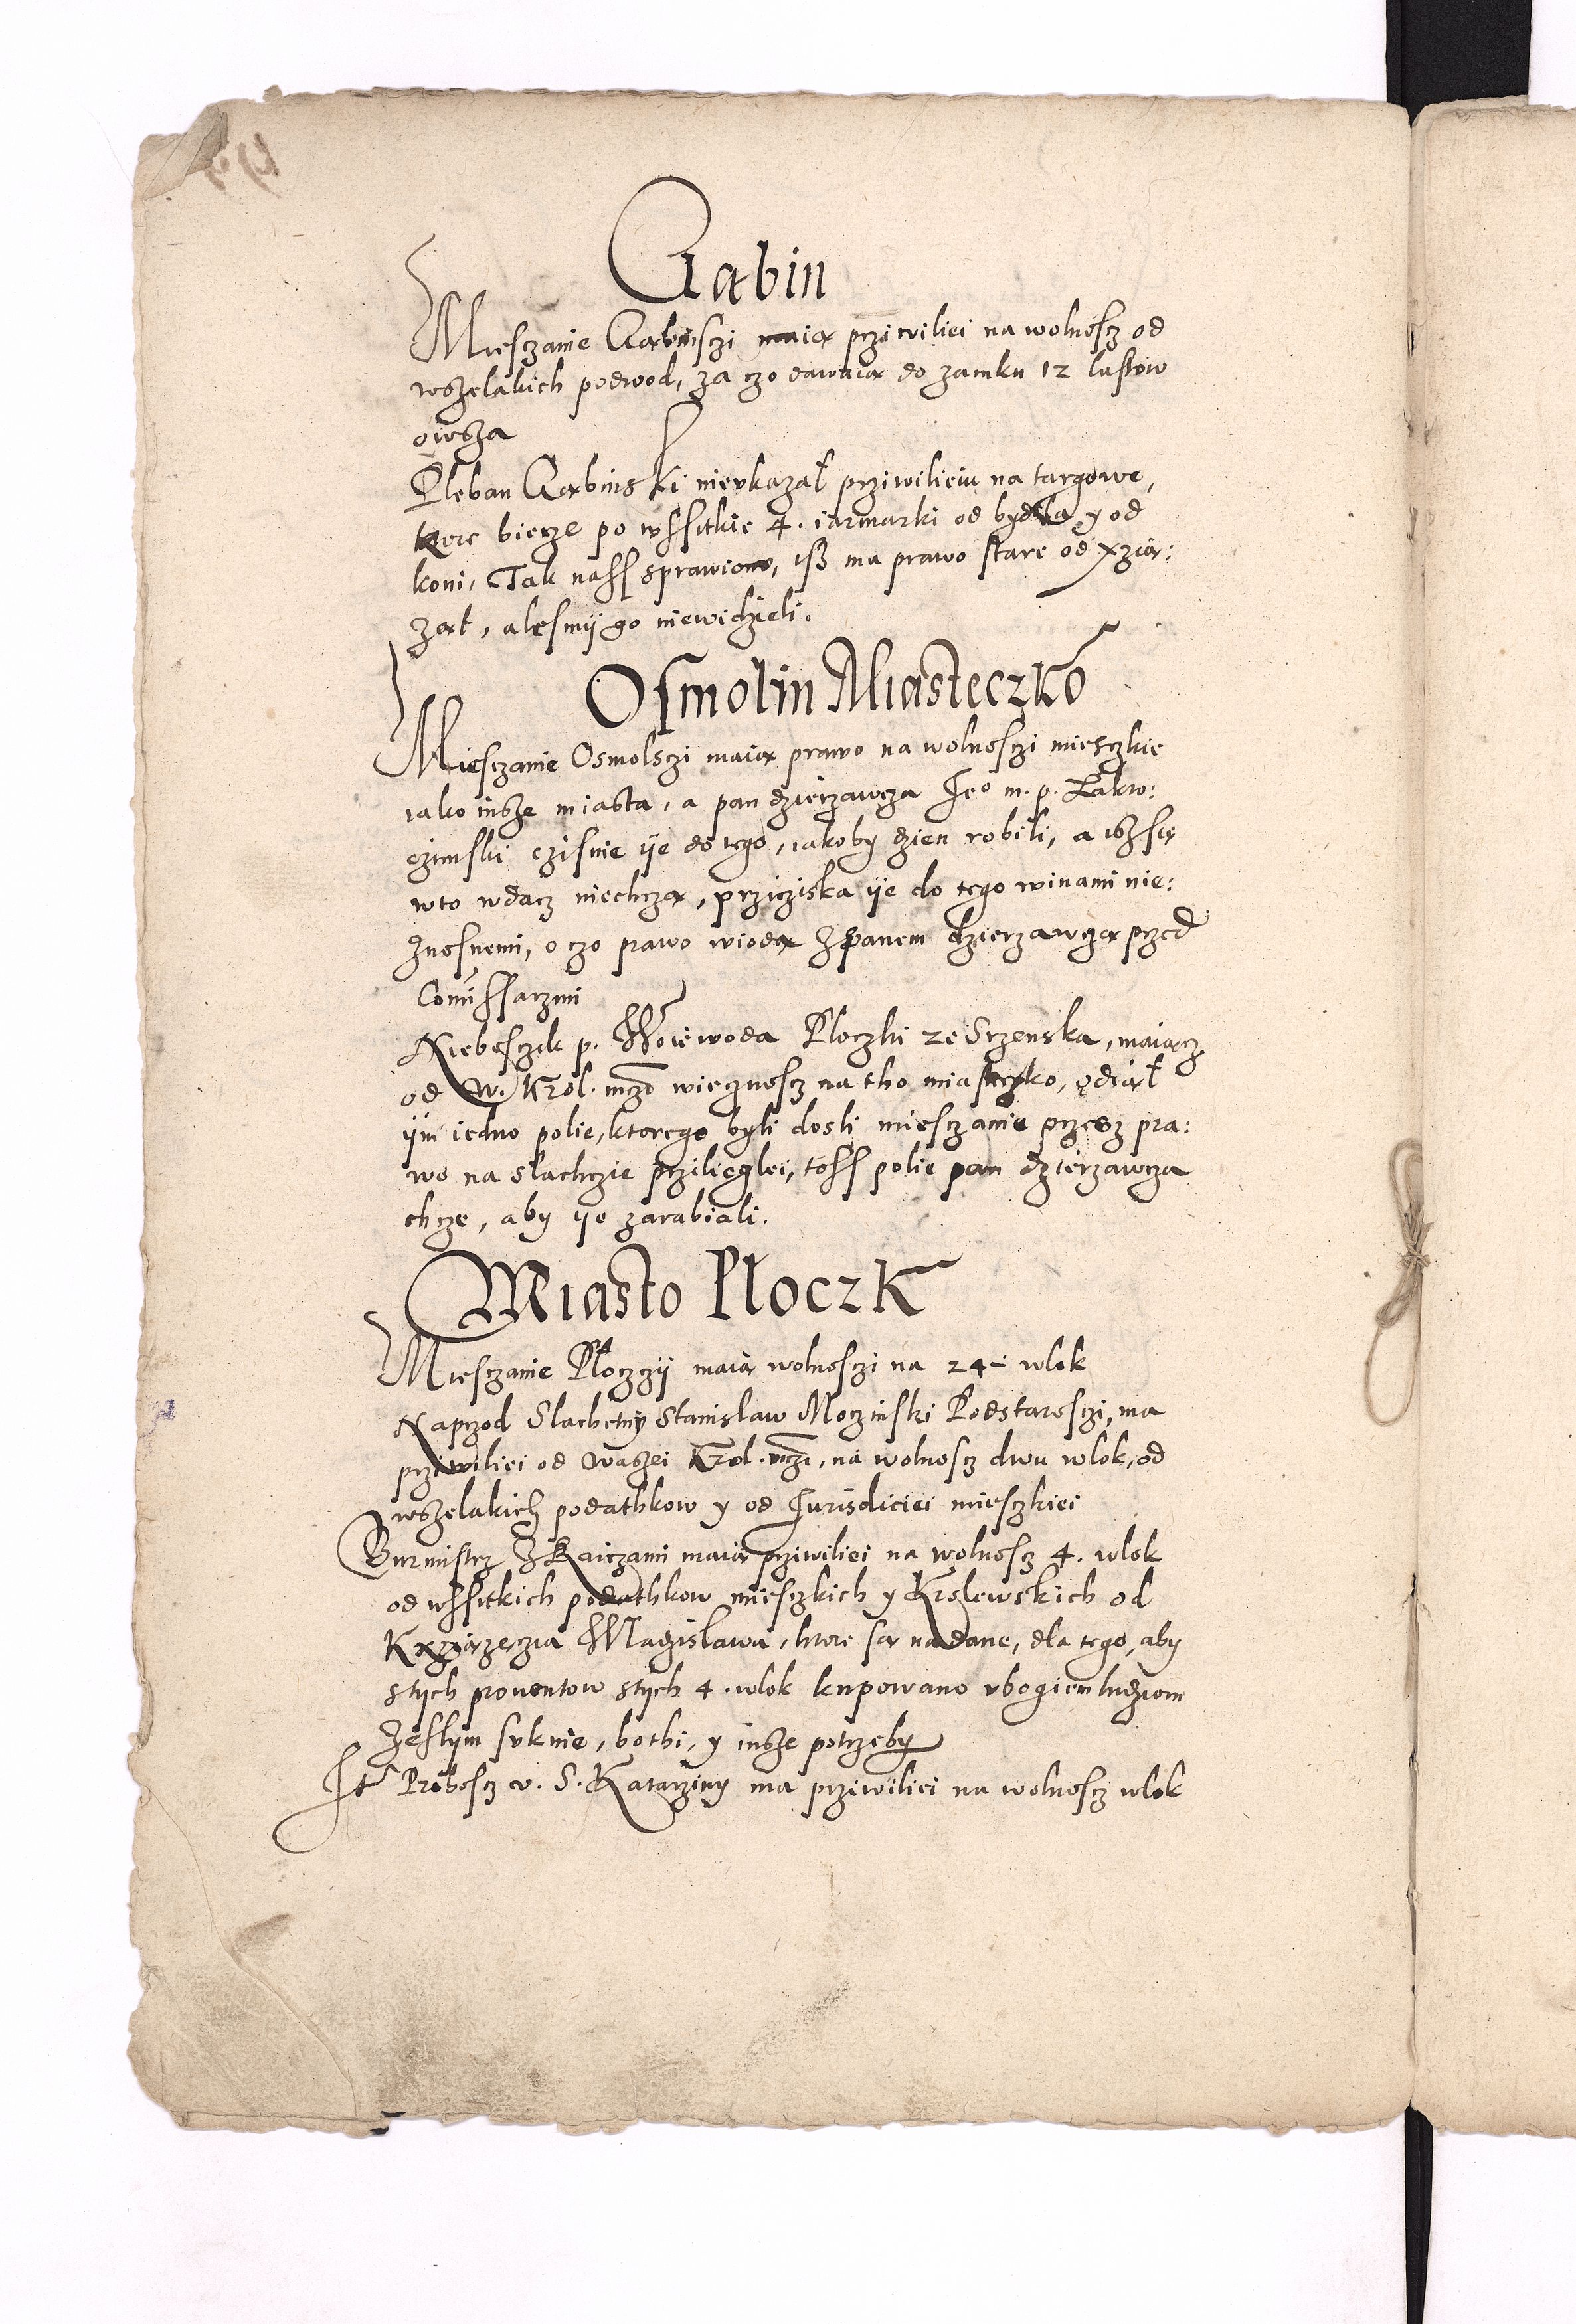 Gąbin
Miesczanie Gąbinsczi maią prziwiliei na wolnoscz od
wszelakich podwod, za czo dawaią do zamku 12 lastow
owsza
Pleban Gąbinski nieukazał prziwilieiu na targowe,
ktore bierze po wssitkie 4. iarmarki od bydła y od
koni, Tak nass sprawiono, isz ma prawo stare od Xzią:
ząt, alesmÿ go niewidzieli.
Osmolin Miasteczko
Miesczanie Osmolsczi maią prawo na wolnosczi miesczkie
iako insze miasta, a pan dzierzawcza Ieo m. p. Łakto:
czinski cziśnie ÿe do tego, iakoby dzien robili, a isz sie
wto wdacz niechczą, prziciska ÿe do tego winami nie:
znosnemi, o czo prawo wiodą z panem dzierzawczą przed
Comissarzmi
Niebosczik p. Woiewoda Ploczki ze Srzenska, maiącz
od W. Krol. mczi wiecznoscz na tho miasteczko, odiął
ÿm iedno polie, ktorego byli dosli miesczanie przesz pra:
wo na slachczie przilieglei, toss polie pan dzierzawcza
chcze, aby ÿe zarabiali.
Miasto Płoczk
Miesczanie Płoczczÿ maią wolnosczi na 24 włok
Naprzod Slachetny Stanislaw Moczinski Podstarosczi, ma
prziwiliei od Waszei Krol. mczi, na wolnoscz dwu wlok, od
wszelakich podathkow y od Iurisdiciei miesczkiei
Burmistrz z Raiczami maią prziwiliei na wolnoscz 4. wlok
od wssitkich podathkow miesczkich y Krolewskich od
Kxziązęczia Władzislawa, ktore są nadane, dla tego, aby
stych prouentow stych 4. wlok kupowano vbogiem ludziom
zeslym suknie, bothi, y insze potrzeby
It Proboscz v. S. Katarziny ma prziwiliei na wolnoscz wlok